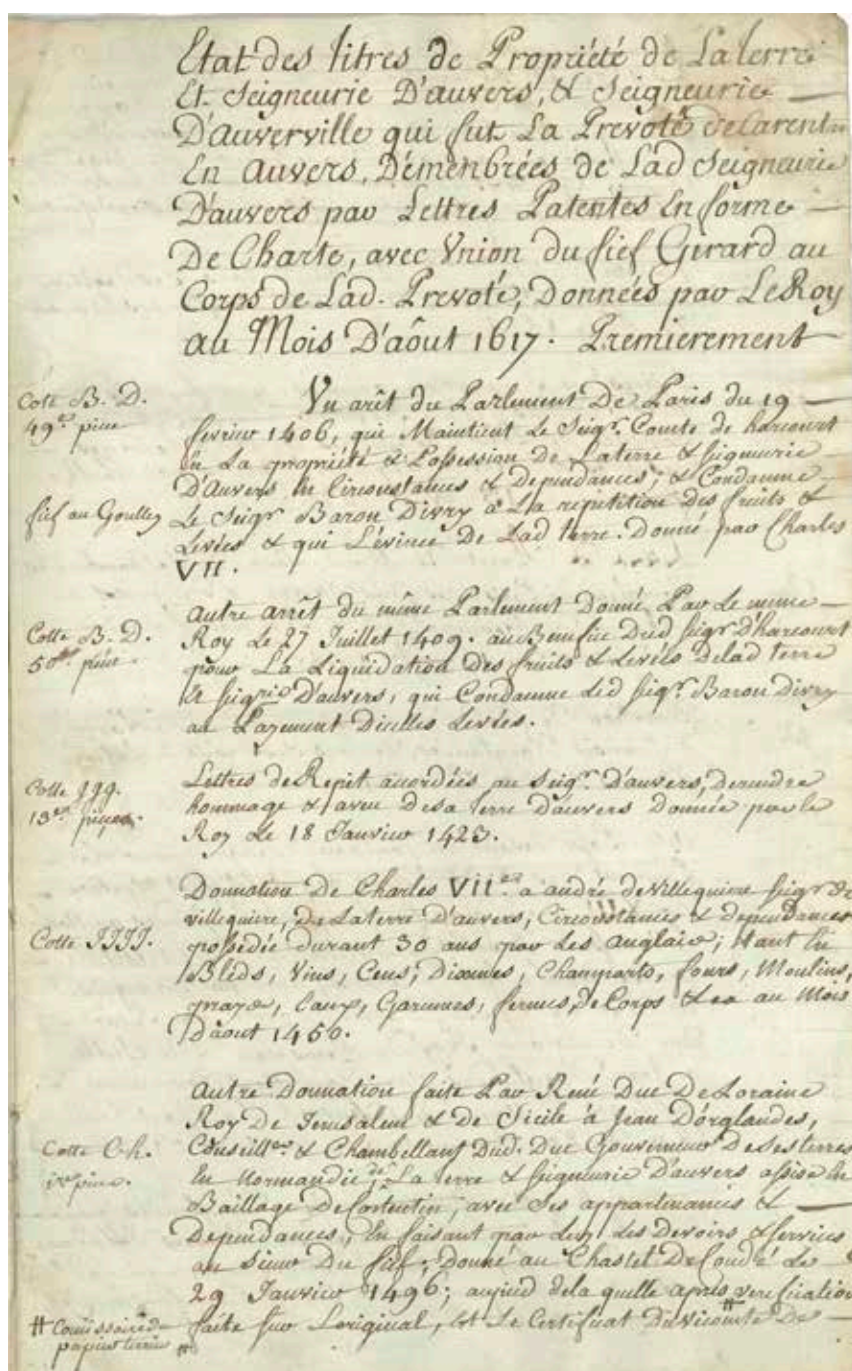 Etat des titres de Propriété de La terre
Et Seigneurie D'auvers, & Seigneurie
D'Auverville qui fut La Prevoté de Carentn
En Auvers, Démenbrées de Lad Seigneurie
D'auvers par Lettres Patentes En forme
De Charte, avec Vnion du fief Girard au
Corps de Lad. Prevoté, Données par Le Roy
au Mois D'aôut 1617. Premierement
Cote B. D.
49e piece
Vn arêt du Parlement De Paris du 19
fevrier 1406, qui Maintient Le Seigr. Comte de harcourt
En La propriété & Possession de Laterre & seigneurie
D'Auvers en Circonstances & Dependances; & Condamne
fief au Goulley
Le Seigr Baron Divry à La repetition des fruits &
Levées & qui L'évince De Lad terre. Donné par Charles
VII.
Cotte B. D.
50e piece
autre arrêt du même Parlement Donné Par Le meme
Roy Le 27 Juillet 1409. au Benefice Dud seigr D'harcourt
pour La Liquidation Des fruits & Levées Delad terre
& seigrie D'auvers, qui Condamne Led seigr. Baron Divry
au Payement Dicelles Levées.
Cotte Jgg.
13e piece.
Lettres de Repit acordées au Seigr. D'auvers, Derendre
hommage & aveu Desa terre D'auvers Donnée par le
Roy Le 18 Janvier 1423.
Cotte JJJJ.
Donnation De Charles VII a andré de villequiere seigr de
villequiere, De Laterre D'auvers, Circonstances & dependances
possedée durant 30 ans par Les anglais; tant En
Bleds, Vins, Cens, Dixmes, Champarts, fours, Moulins,
prays, Eaux, Garennes, fermes, de Corps &ca au Mois
D'aout 1450.
Cotte C.h.
1re piece.
autre Donnation faite Par René Duc De Loraine
Roy De Jerusalem & de Sicile à Jean D'orglandes,
Conseiller & Chambellant Dud. Duc Gouverneur De Ses terres
En Normandie, de La terre & seigneurie D'auvers assise En
Baillage De Costentin, avec Ses appartenances &
Dependances, En faisant par Luy Les Devoirs & services
au sieur Du fief, Donné au Chastel De Condé Le
29 Janvier 1496; aupied dela quelle après verification
faite sur Loriginal, est Le Certificat Du vicomte # De
# Comissaire de
papier terrier #